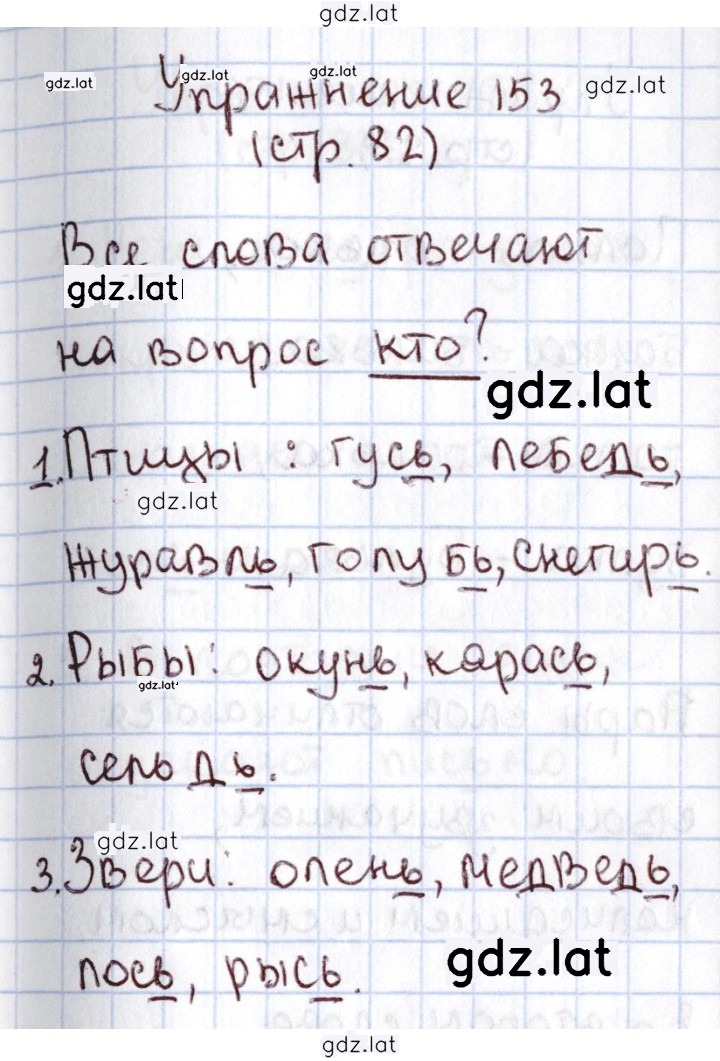 gdz.lat
gdz.lat
gdz.lat
gdz.lat
gdz.lat
Упражнение 153
(стр. 82)
Все слова отвечают
gdz.lat
на вопрос кто?
gdz.lat
1. Птицы: гусь, лебедь,
gdz.lat
журавль, голубь, снегирь.
2. Рыбы: окунь, карась,
gdz.lat
сельдь.
gdz.lat
3. Звери: олень, медведь,
gdz.lat
лось, рысь.
gdz.lat